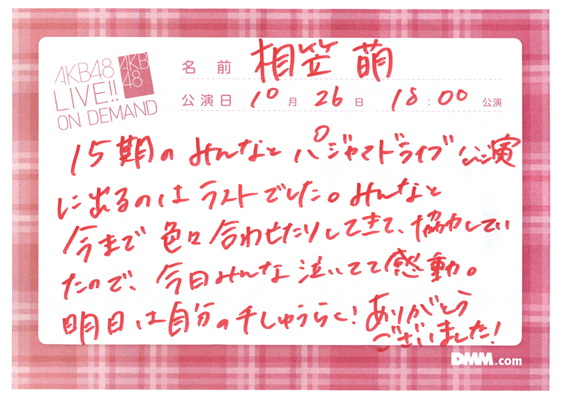 AKB48
LIVE!!
ON DEMAND
AKB
48
名前 相笠 萌
公演日 10月 26日 18:00 公演
15期のみんなと パジャマドライブ公演
に出るのはラストでした。みんなと
今まで色々合わせたりしてきて、協力してい
たので、今日みんな泣いてて感動。
明日は自分の千しゅうらく!ありがとう
ございました!
DMM.com